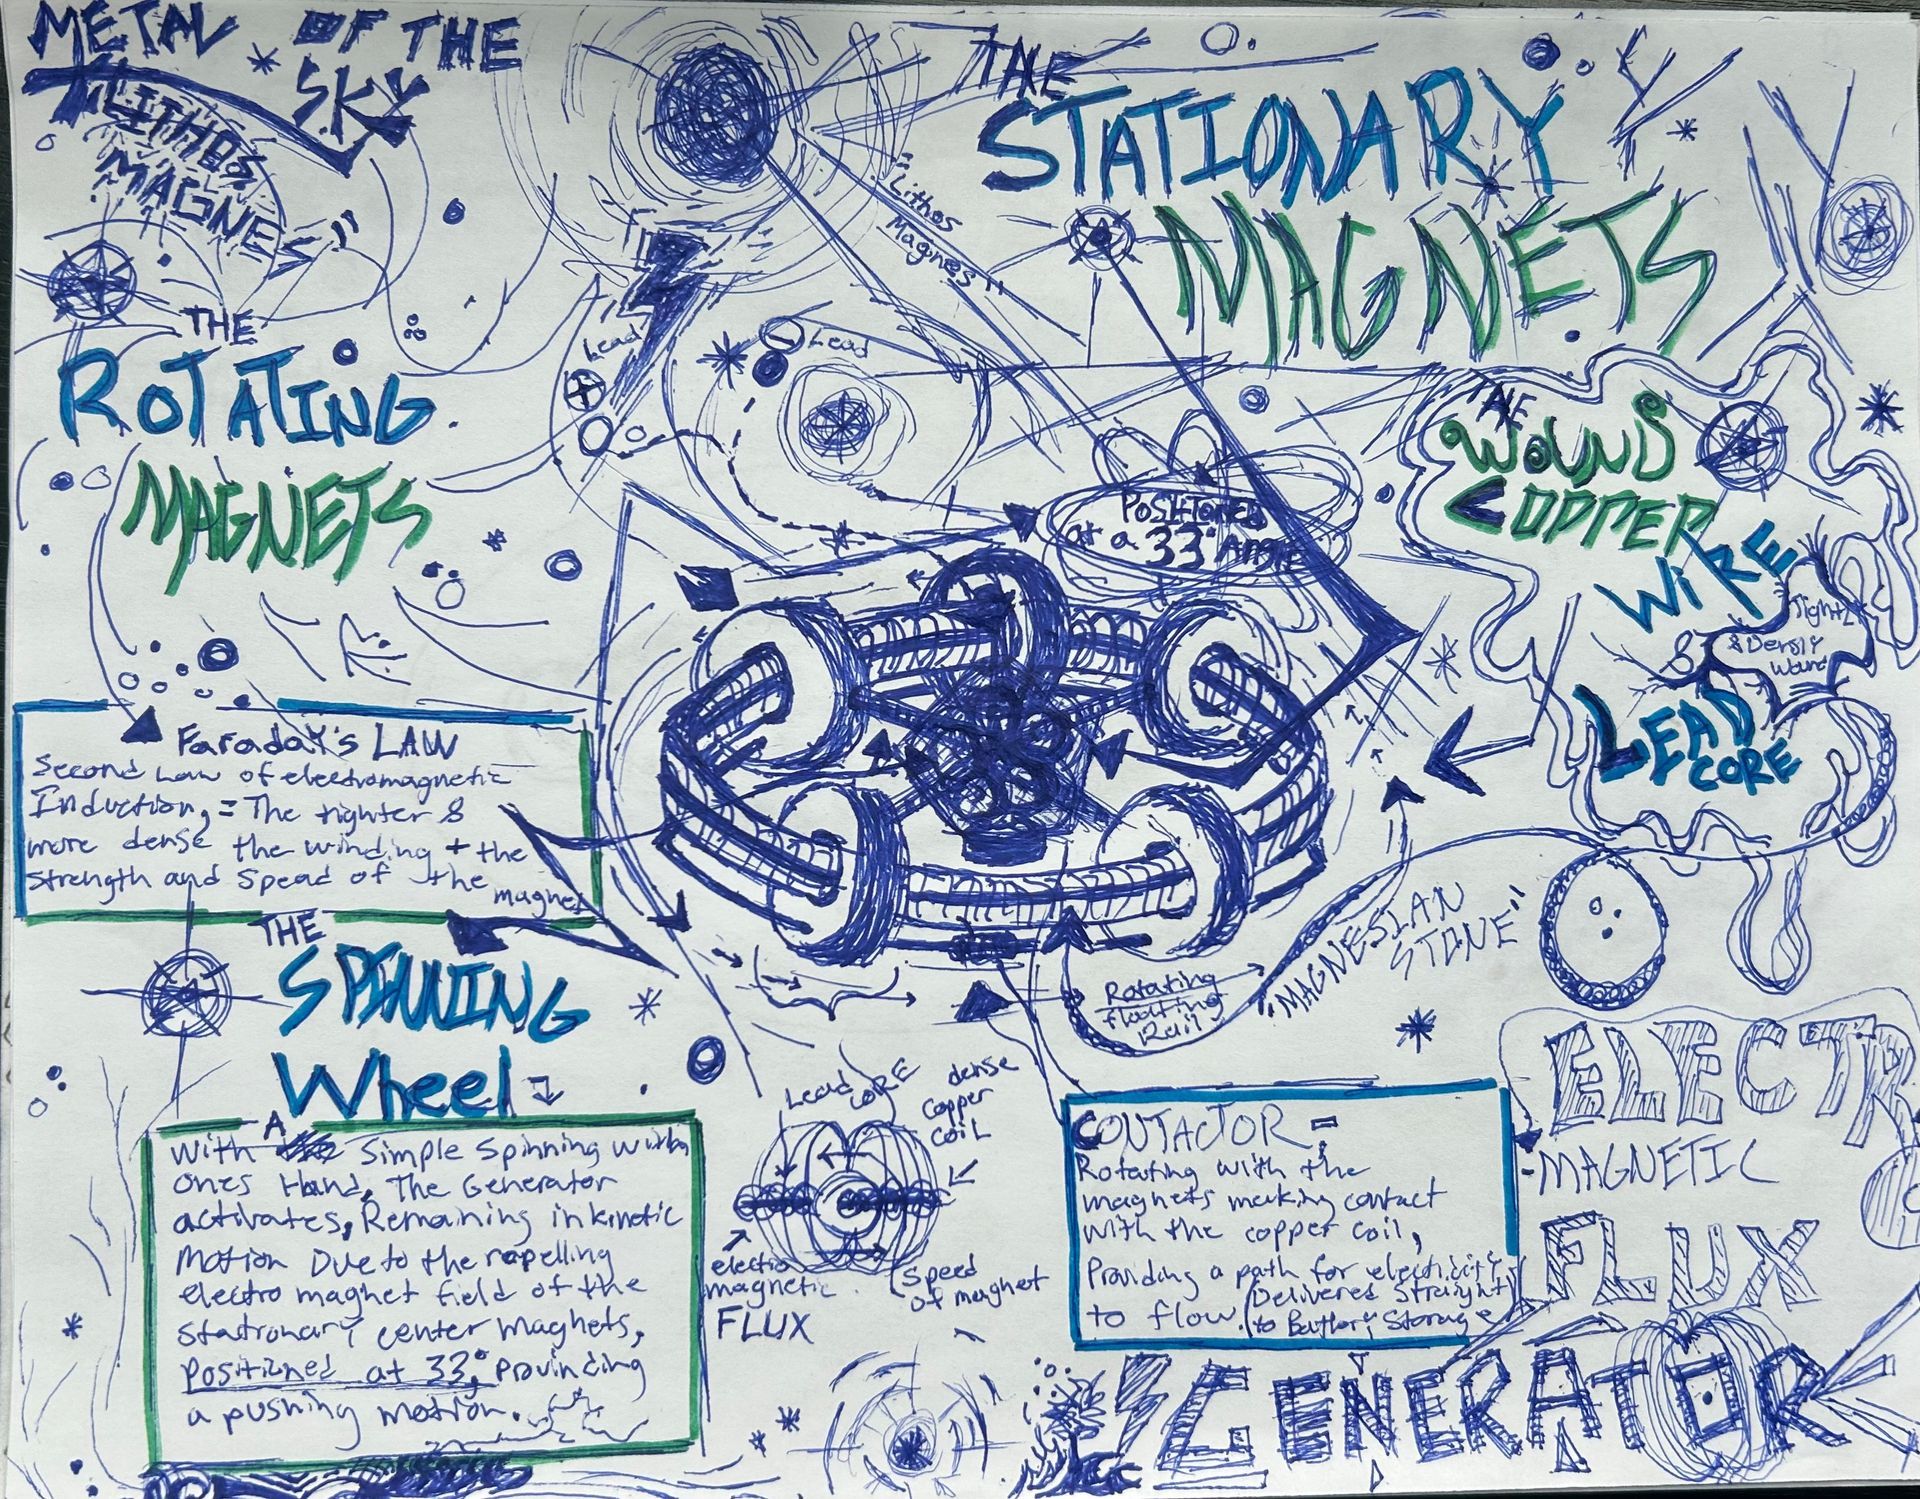 METAL OF THE
SKY
"LITHOS
MAGNES"
THE
ROTATING
MAGNETS
THE
STATIONARY
MAGNETS
"Lithos
Magines"
Lead
Lead
POSITIONED
at a 33° Angle
THE
WOUND
COPPER
WIRE
&
Tightly
& Densly
wound
LEAD
CORE
Faraday's LAW
Second Law of electromagnetic
Induction, = The tighter &
more dense the winding + the
Strength and Spead of the
magnet
THE
SPINNING
Wheel
With A Simple Spinning with
ones Hand, The Generator
activates, Remaining in kinetic
Motion Due to the repelling
electro magnet field of the
Stationary center maghets,
positioned at 33°, provinding
a pushing motion.
Rotating
floating
Rail
"MAGNESIAN
STONE"
Lead CORE
dense
Copper
COIL
electro
magnetic
FLUX
Speed
of magnet
CONTACTOR =
Rotating with the
magnets making contact
with the copper coil,
Providing a path for electricity
to flow. (Delivered Straight
to Battery Storage
ELECTR
-MAGNETIC
FLUX
GENERATOR